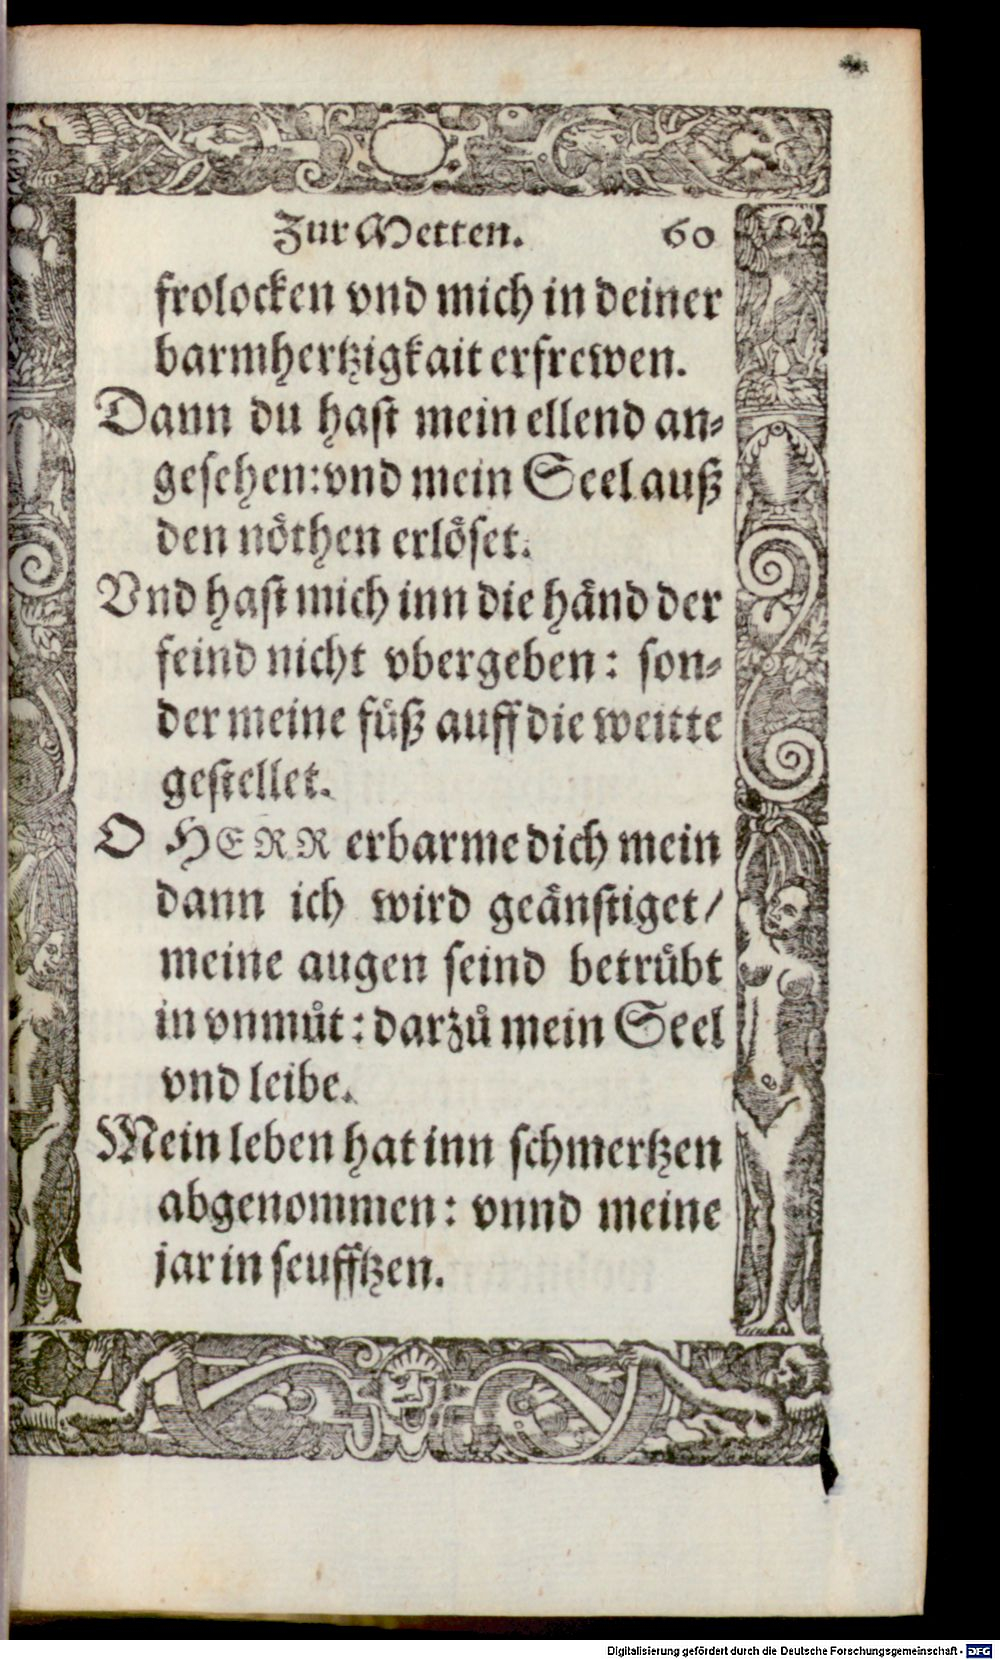 Zur Metten. 60
frolocken vnd mich in deiner
barmhertzigkait erfrewen.
Dann du hast mein ellend an⸗
gesehen: vnd mein Seel auß
den nöthen erlöset.
Vnd hast mich inn die händ der
feind nicht vbergeben: son⸗
der meine füß auff die weitte
gestellet.
O HERR erbarme dich mein
dann ich wird geänstiget/
meine augen seind betrübt
in vnmůt: darzů mein Seel
vnd leibe.
Mein leben hat inn schmertzen
abgenommen: vnnd meine
jar in seufftzen.
Digitalisierung gefördert durch die Deutsche Forschungsgemeinschaft - DFG